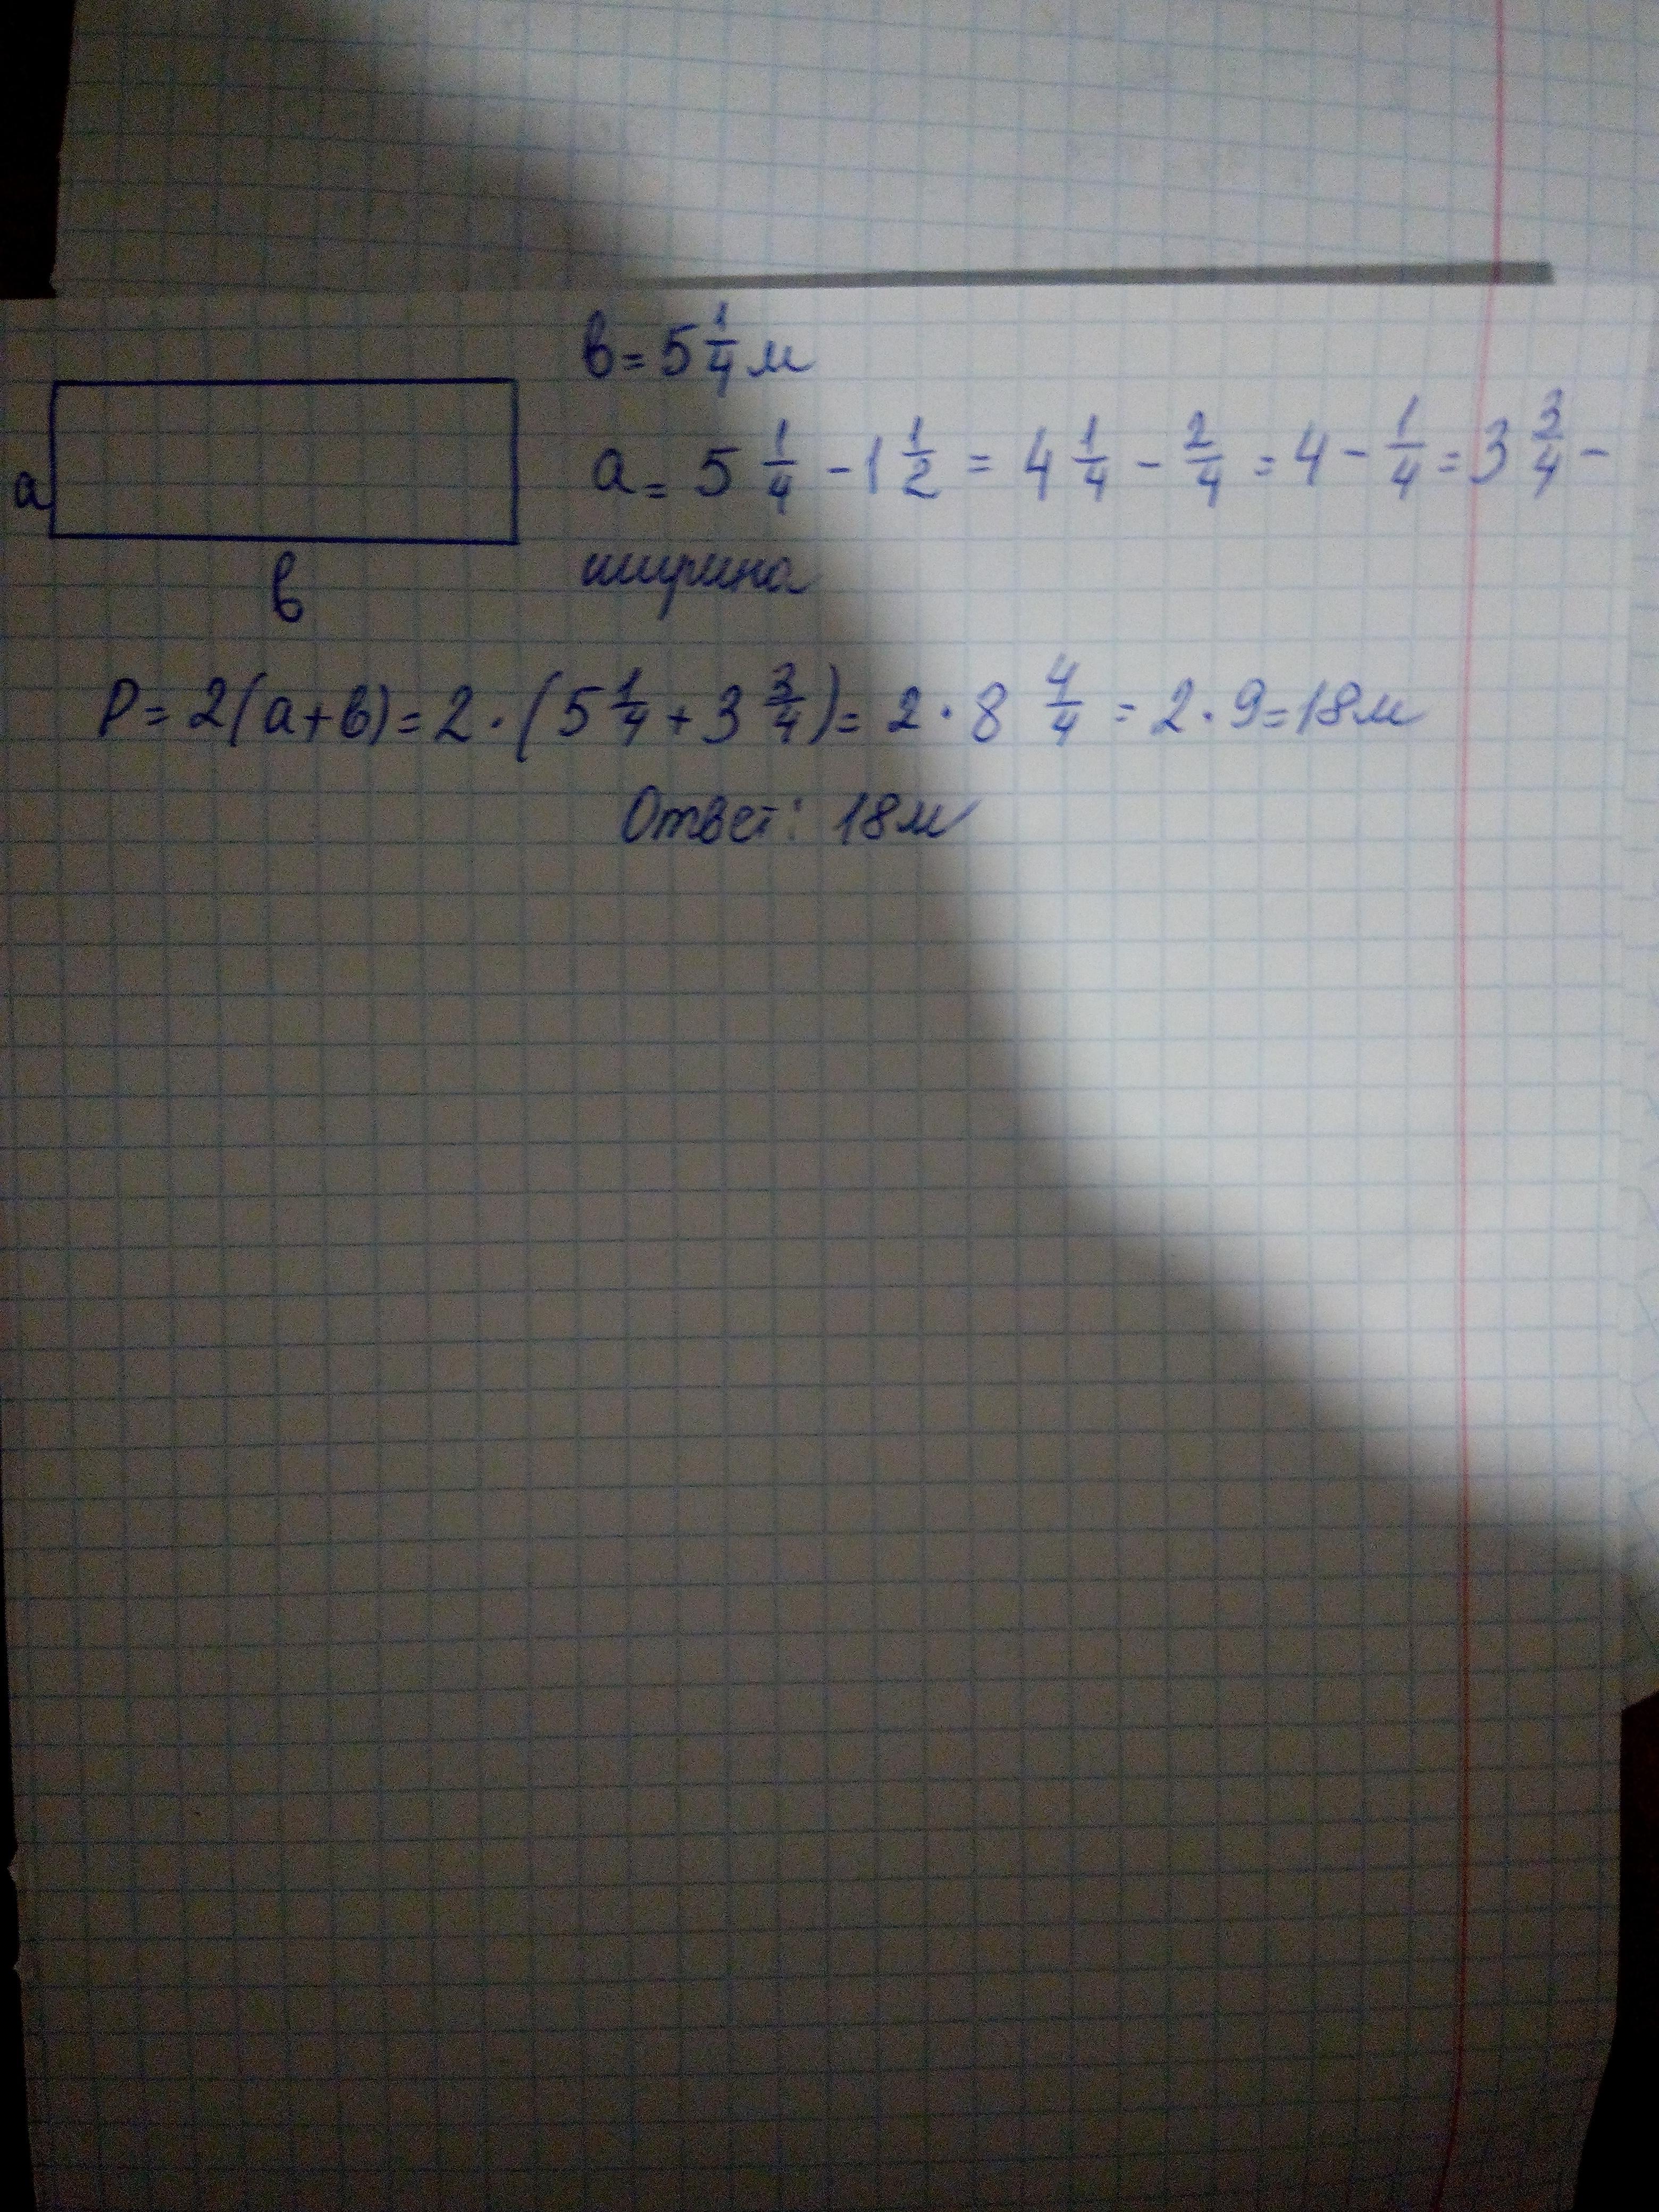 в = 5 1/4 м
a = 5 1/4 - 1 1/2 = 4 1/4 - 2/4 = 4 - 1/4 = 3 3/4 -
a
ширина
в
P = 2(a+в) = 2 · (5 1/4 + 3 3/4) = 2 · 8 4/4 = 2 · 9 = 18м
Ответ: 18м